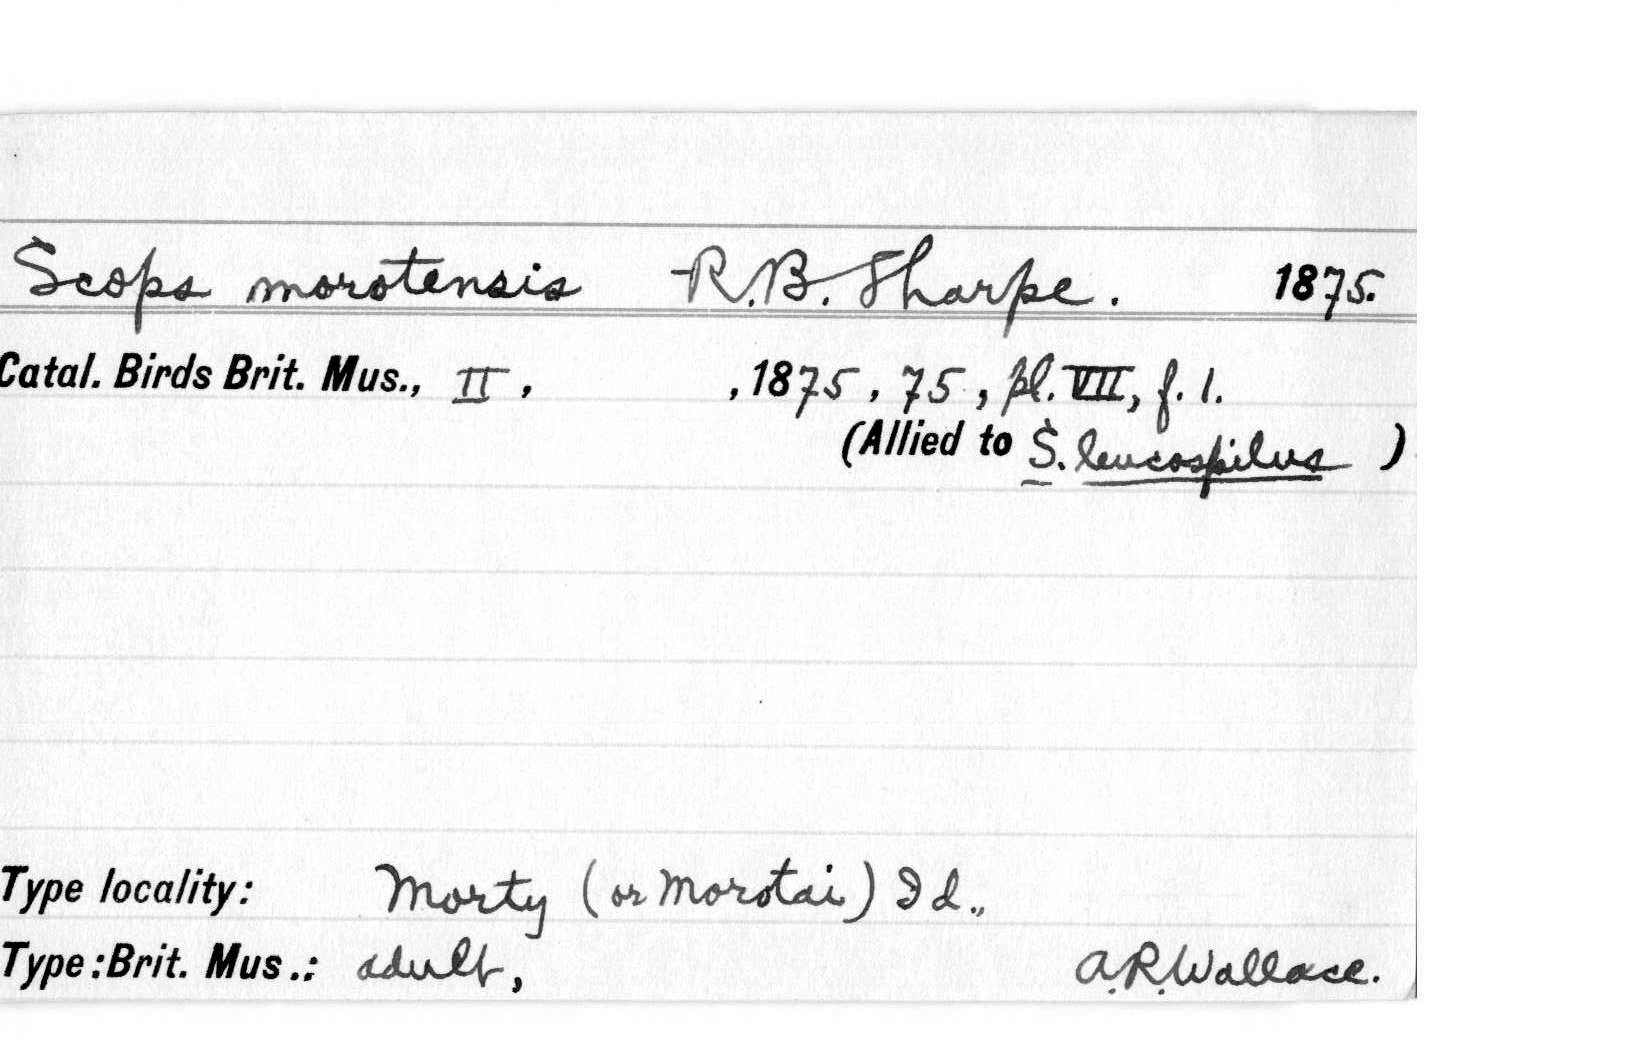 Scops morotensis R.B. Sharpe. 1875.
Catal. Birds Brit. Mus., II, , 1875, 75, pl. VII, f. 1.
(Allied to S. leucospilus )
Type locality: Morty (or Morotai) Id.,
Type: Brit. Mus.: adult, A.R. Wallace.